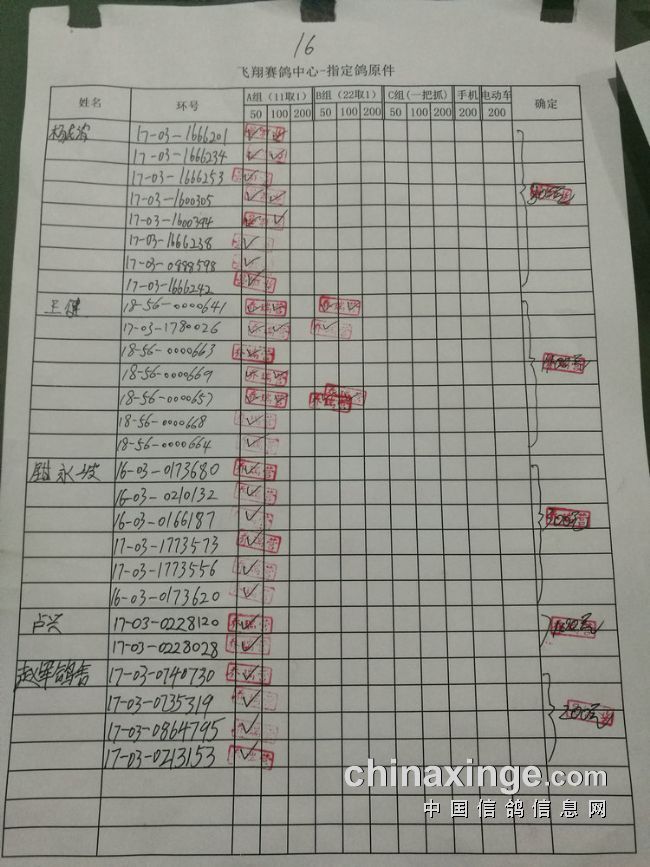 16
飞翔赛鸽中心-指定鸽原件
姓名 环号 A组（11取1） B组（22取1） C组(一把抓) 手机 电动车 确定
50 100 200 50 100 200 50 100 200 200 200
17-03-1666201
17-03-1666234
17-03-1666253
17-03-1600305
17-03-1600394
17-03-1666238
17-03-0888598
17-03-1666242
王健 18-56-0000641
17-03-1780026
18-56-0000663
18-56-0000669
18-56-0000657
18-56-0000668
18-56-0000664
永波 16-03-0173680
16-03-0210132
16-03-0166187
17-03-1773573
17-03-1773556
16-03-0173620
卢兴 17-03-0228120
17-03-0228028
赵军鸽舍 17-03-0740730
17-03-0735319
17-03-0864795
17-03-0213153
200元
chinaxinge.com
中国信鸽信息网